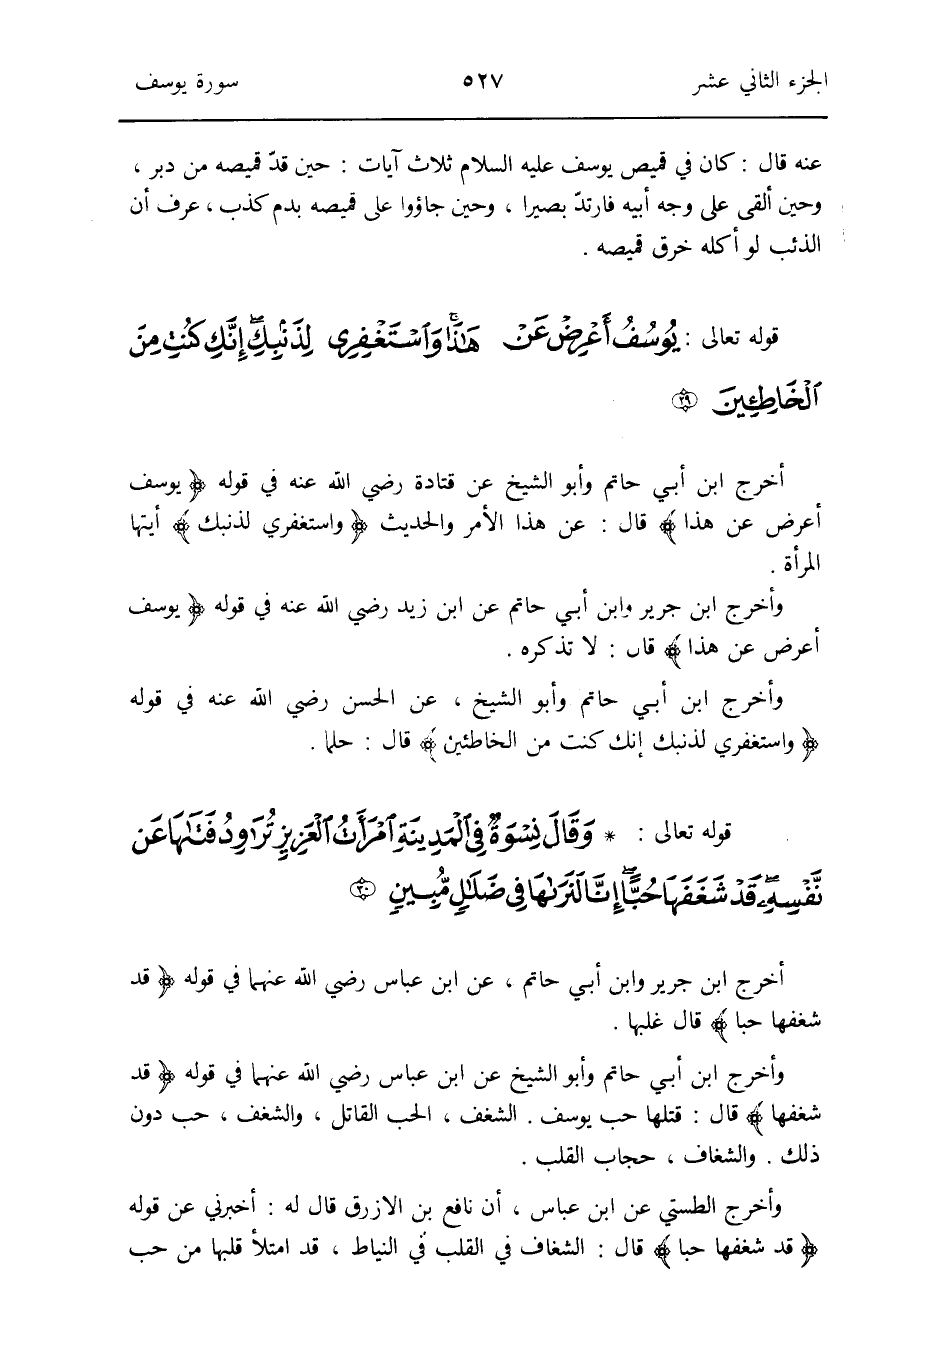 الجزء الثاني عشر ٥٢٧ سورة يوسف
عنه قال : كان في قميص يوسف عليه السلام ثلاث آيات : حين قدّ قميصه من دبر ،
وحين ألقى على وجه أبيه فارتدّ بصيرا ، وحين جاؤوا على قميصه بدم كذب ، عرف أن
الذئب لو أكله خرق قميصه .
قوله تعالى : يُوسُفُ أَعْرِضْ عَنْ هَٰذَا وَٱسْتَغْفِرِى لِذَنۢبِكِ إِنَّكِ كُنتِ مِنَ
ٱلْخَاطِـِٔينَ ۝٢٩
أخرج ابن أبي حاتم وأبو الشيخ عن قتادة رضي الله عنه في قوله ﴿ يوسف
أعرض عن هذا ﴾ قال : عن هذا الأمر والحديث ﴿ واستغفري لذنبك ﴾ أيتها
المرأة .
وأخرج ابن جرير وابن أبي حاتم عن ابن زيد رضي الله عنه في قوله ﴿ يوسف
أعرض عن هذا ﴾ قال : لا تذكره .
وأخرج ابن أبي حاتم وأبو الشيخ ، عن الحسن رضي الله عنه في قوله
﴿ واستغفري لذنبك إنك كنت من الخاطئين ﴾ قال : حلما .
قوله تعالى : * وَقَالَ نِسْوَةٌ فِى ٱلْمَدِينَةِ ٱمْرَأَتُ ٱلْعَزِيزِ تُرَٰوِدُ فَتَىٰهَا عَن
نَّفْسِهِۦ قَدْ شَغَفَهَا حُبًّا إِنَّا لَنَرَىٰهَا فِى ضَلَٰلٍ مُّبِينٍ ۝٣٠
أخرج ابن جرير وابن أبي حاتم ، عن ابن عباس رضي الله عنهما في قوله ﴿ قد
شغفها حبا ﴾ قال غلبها .
وأخرج ابن أبي حاتم وأبو الشيخ عن ابن عباس رضي الله عنهما في قوله ﴿ قد
شغفها ﴾ قال : قتلها حب يوسف . الشغف ، الحب القاتل ، والشغف ، حب دون
ذلك . والشغاف ، حجاب القلب .
وأخرج الطستي عن ابن عباس ، أن نافع بن الازرق قال له : أخبرني عن قوله
﴿ قد شغفها حبا ﴾ قال : الشغاف في القلب في النياط ، قد امتلأ قلبها من حب